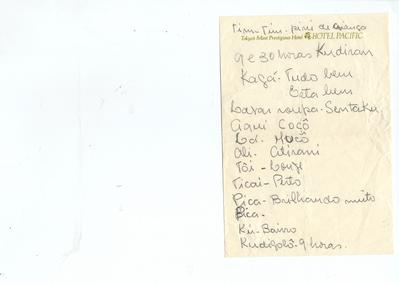 Tim-Tim-pipi de criança
Tokyo's Most Prestigious Hotel HOTEL PACIFIC
9 e 30 horas Kudiran
Kagá-Tudo bem
Esta bem
Lavar roupa-Sentaku
aqui Cocô
Lá. Mucô
Ali-
Tôi-Longe
Ticai-Perto
Pica-Brilhando muito
Pica-
Ku-Bairro
Kudigobô-9 horas.